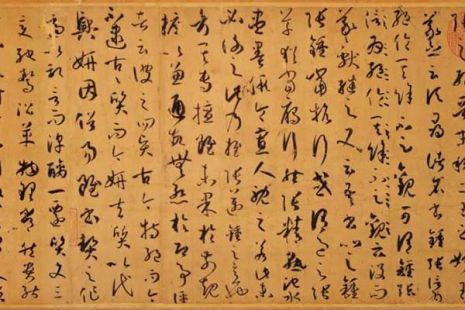 羲之云頃尋諸名書鍾張信
為絕倫其餘不足觀可謂鍾張
云沒而
羲獻繼之又云吾書比之鍾
張鍾當抗行或謂過之張
草猶當鴈行然張精熟池水
盡墨假令寡人耽之若此未
必謝之此乃推張邁鍾之意也
考其專擅雖未果於前規
摭以兼通故無慚於即事評
者云彼之四賢古今特絕而今
不逮古古質而今妍夫質以代
興妍因俗易雖書契之作
適以記言而淳醨一遷質文三
變馳騖沿革物理常然貴能